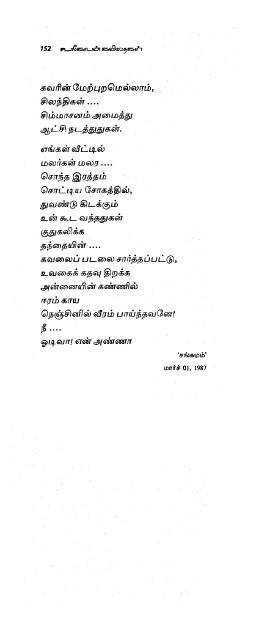 152
கவரின் மேற்புறமெல்லாம்,
சிலந்திகள் ....
சிம்மாசனம் அமைத்து
ஆட்சி நடத்துதுகள்.
எங்கள் வீட்டில்
மலர்கள் மலர ....
சொந்த இரத்தம்
சொட்டிய சோகத்தில்,
துவண்டு கிடக்கும்
உன் கூட வந்ததுகள்
குதுகலிக்க
தந்தையின் ....
கவலைப் படலை சார்த்தப்பட்டு,
உவகைக் கதவு திறக்க
அன்னையின் கண்ணில்
ஈரம் காய
நெஞ்சினில் வீரம் பாய்ந்தவனே!
நீ ....
ஓடிவா! என் அண்ணா
'சங்கமம்'
மார்ச் 01, 1987